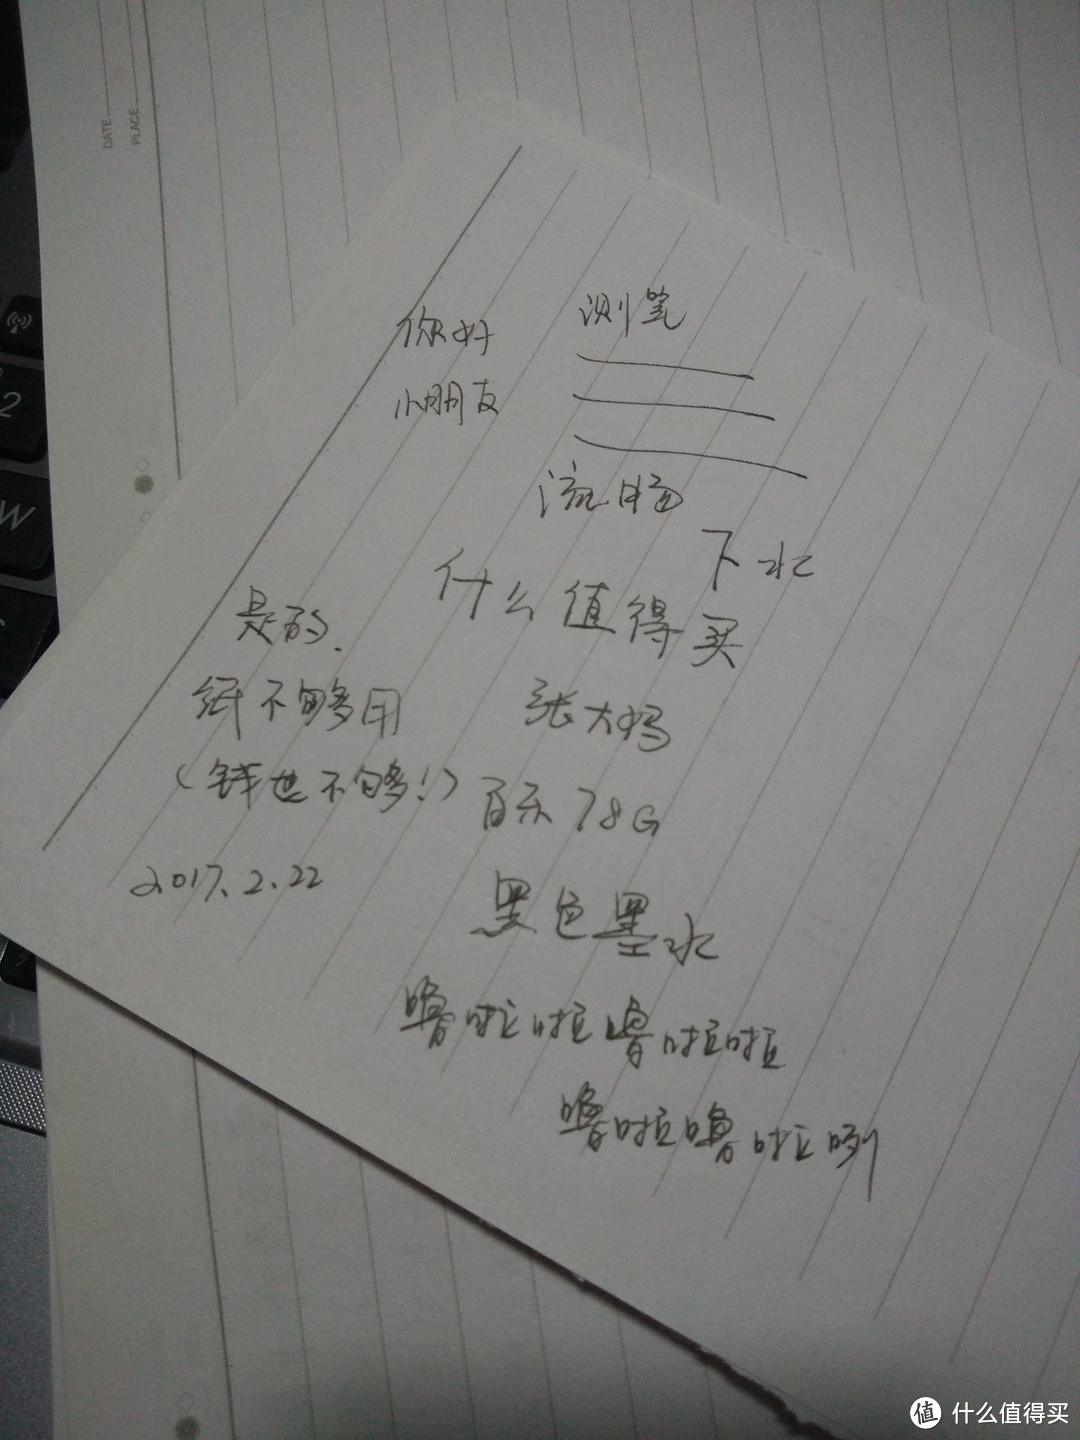 DATE
PLACE
2
W
你好
小朋友
测笔
流畅
下水
什么值得买
是的.
纸不够用
(钱也不够!)
2017.2.22
张大妈
百乐78G
黑色墨水
噜啦啦噜啦啦
噜啦噜啦咧
值 什么值得买